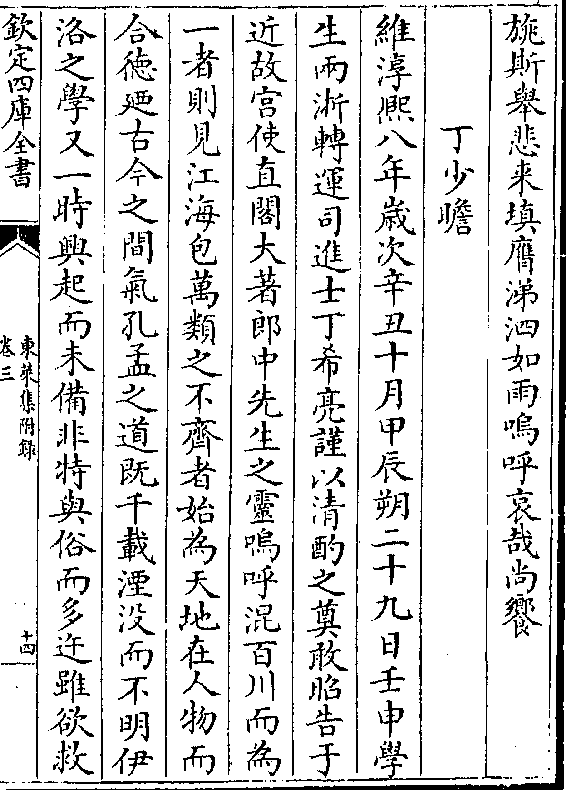 旐斯舉悲来填膺涕泗如雨嗚呼哀哉尚饗
丁少瞻
維淳熙八年歲次辛丑十月甲辰朔二十九日壬申學
生兩浙轉運司進士丁希亮謹以清酌之奠敢昭告于
近故宫使直閣大著郎中先生之靈嗚呼混百川而為
一者則見江海包萬類之不齊者始為天地在人物而
合德廼古今之間氣孔孟之道既千載湮没而不明伊
洛之學又一時興起而未備非特與俗而多迕雖欲救
欽定四庫全書
東萊集附録
卷三
十四